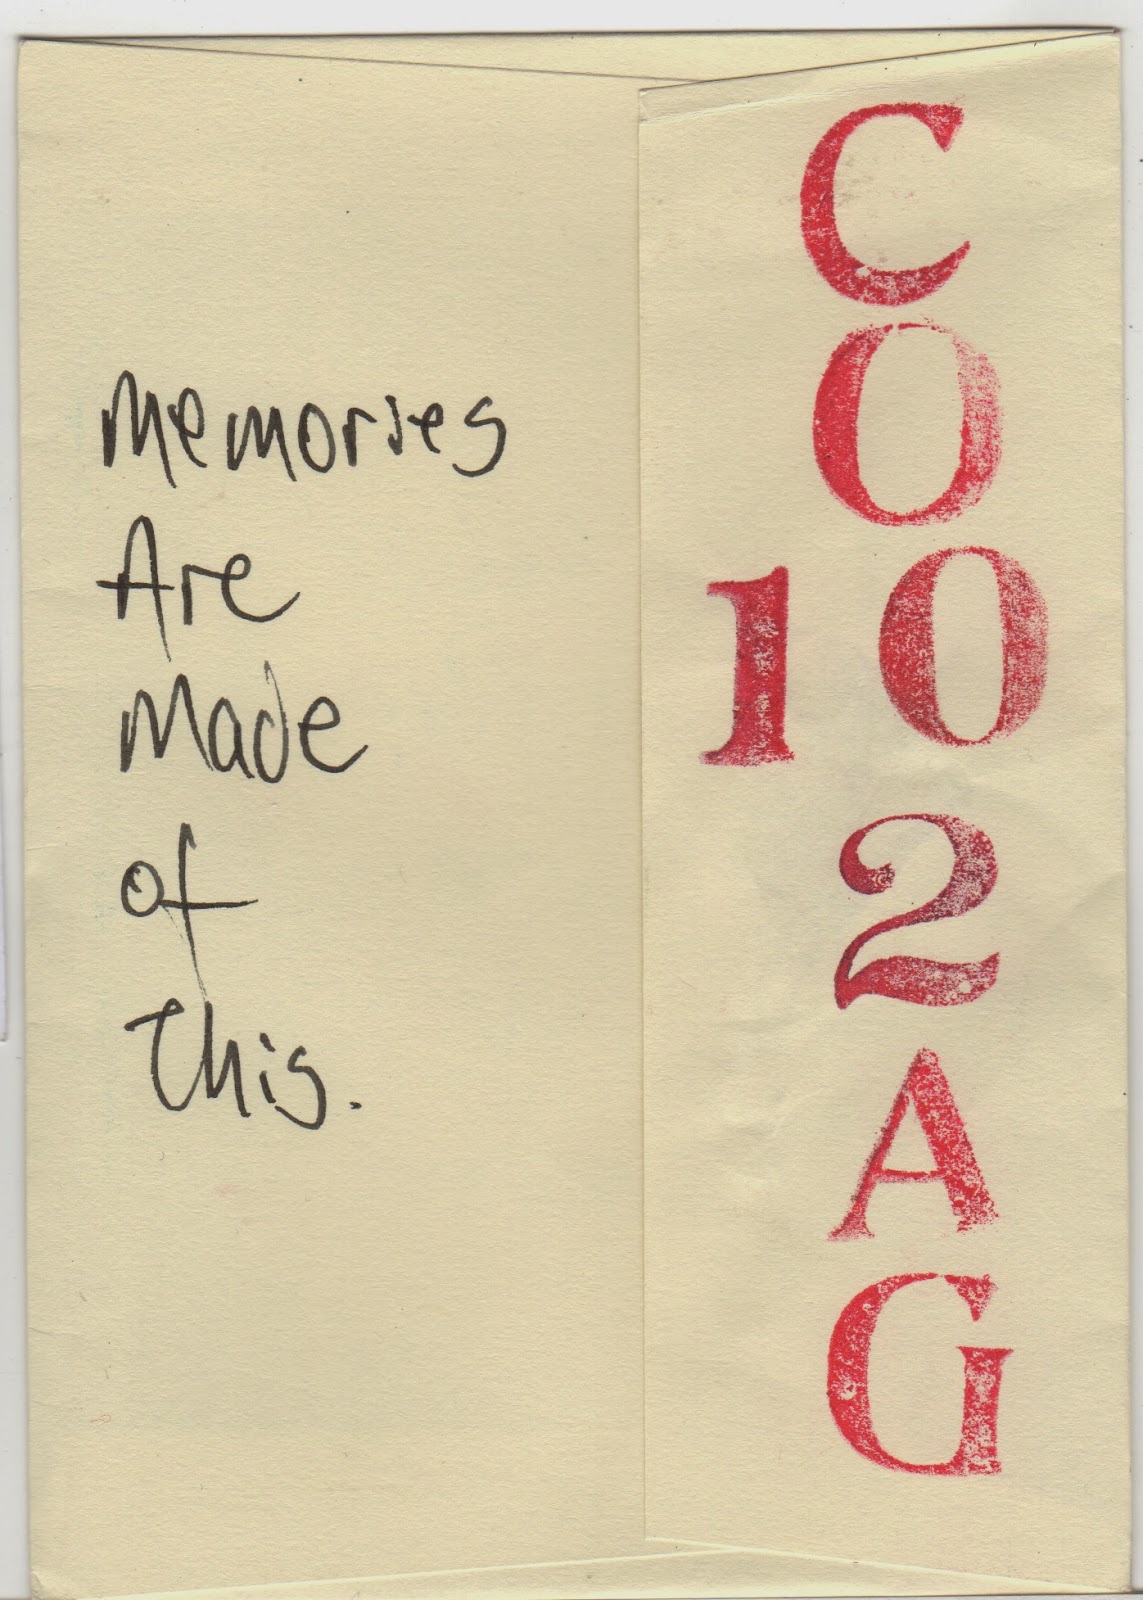 memories
Are
Made
of
This.
C
O
10
2
A
G